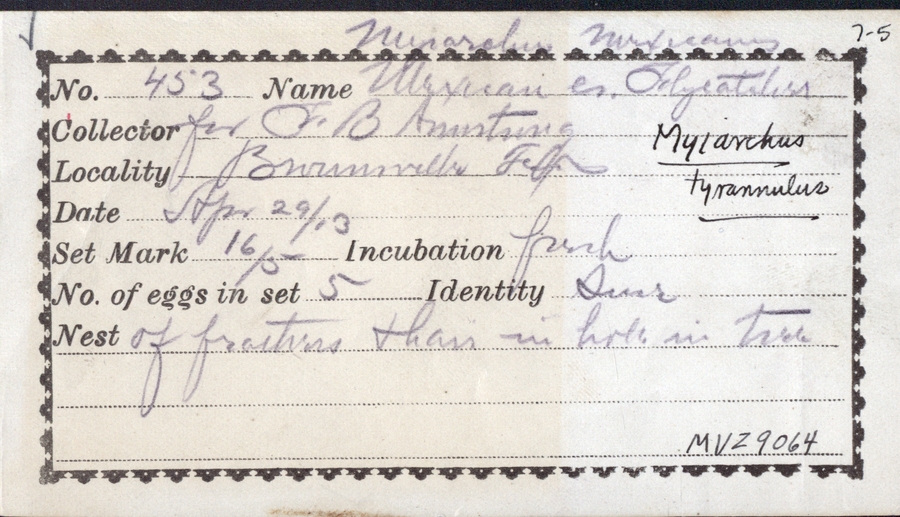 7-5
Myiarchus Mexicanus
No. 453 Name Mexican cr. Flycatcher
Collector for F. B Armstrong
Myiarchus
Locality Brownsville Tex
tyrannulus
Date Apr 29/13
Set Mark 16/5 Incubation fresh
No. of eggs in set 5 Identity Sure
Nest of feathers & hair in hole in tree
MVZ 9064